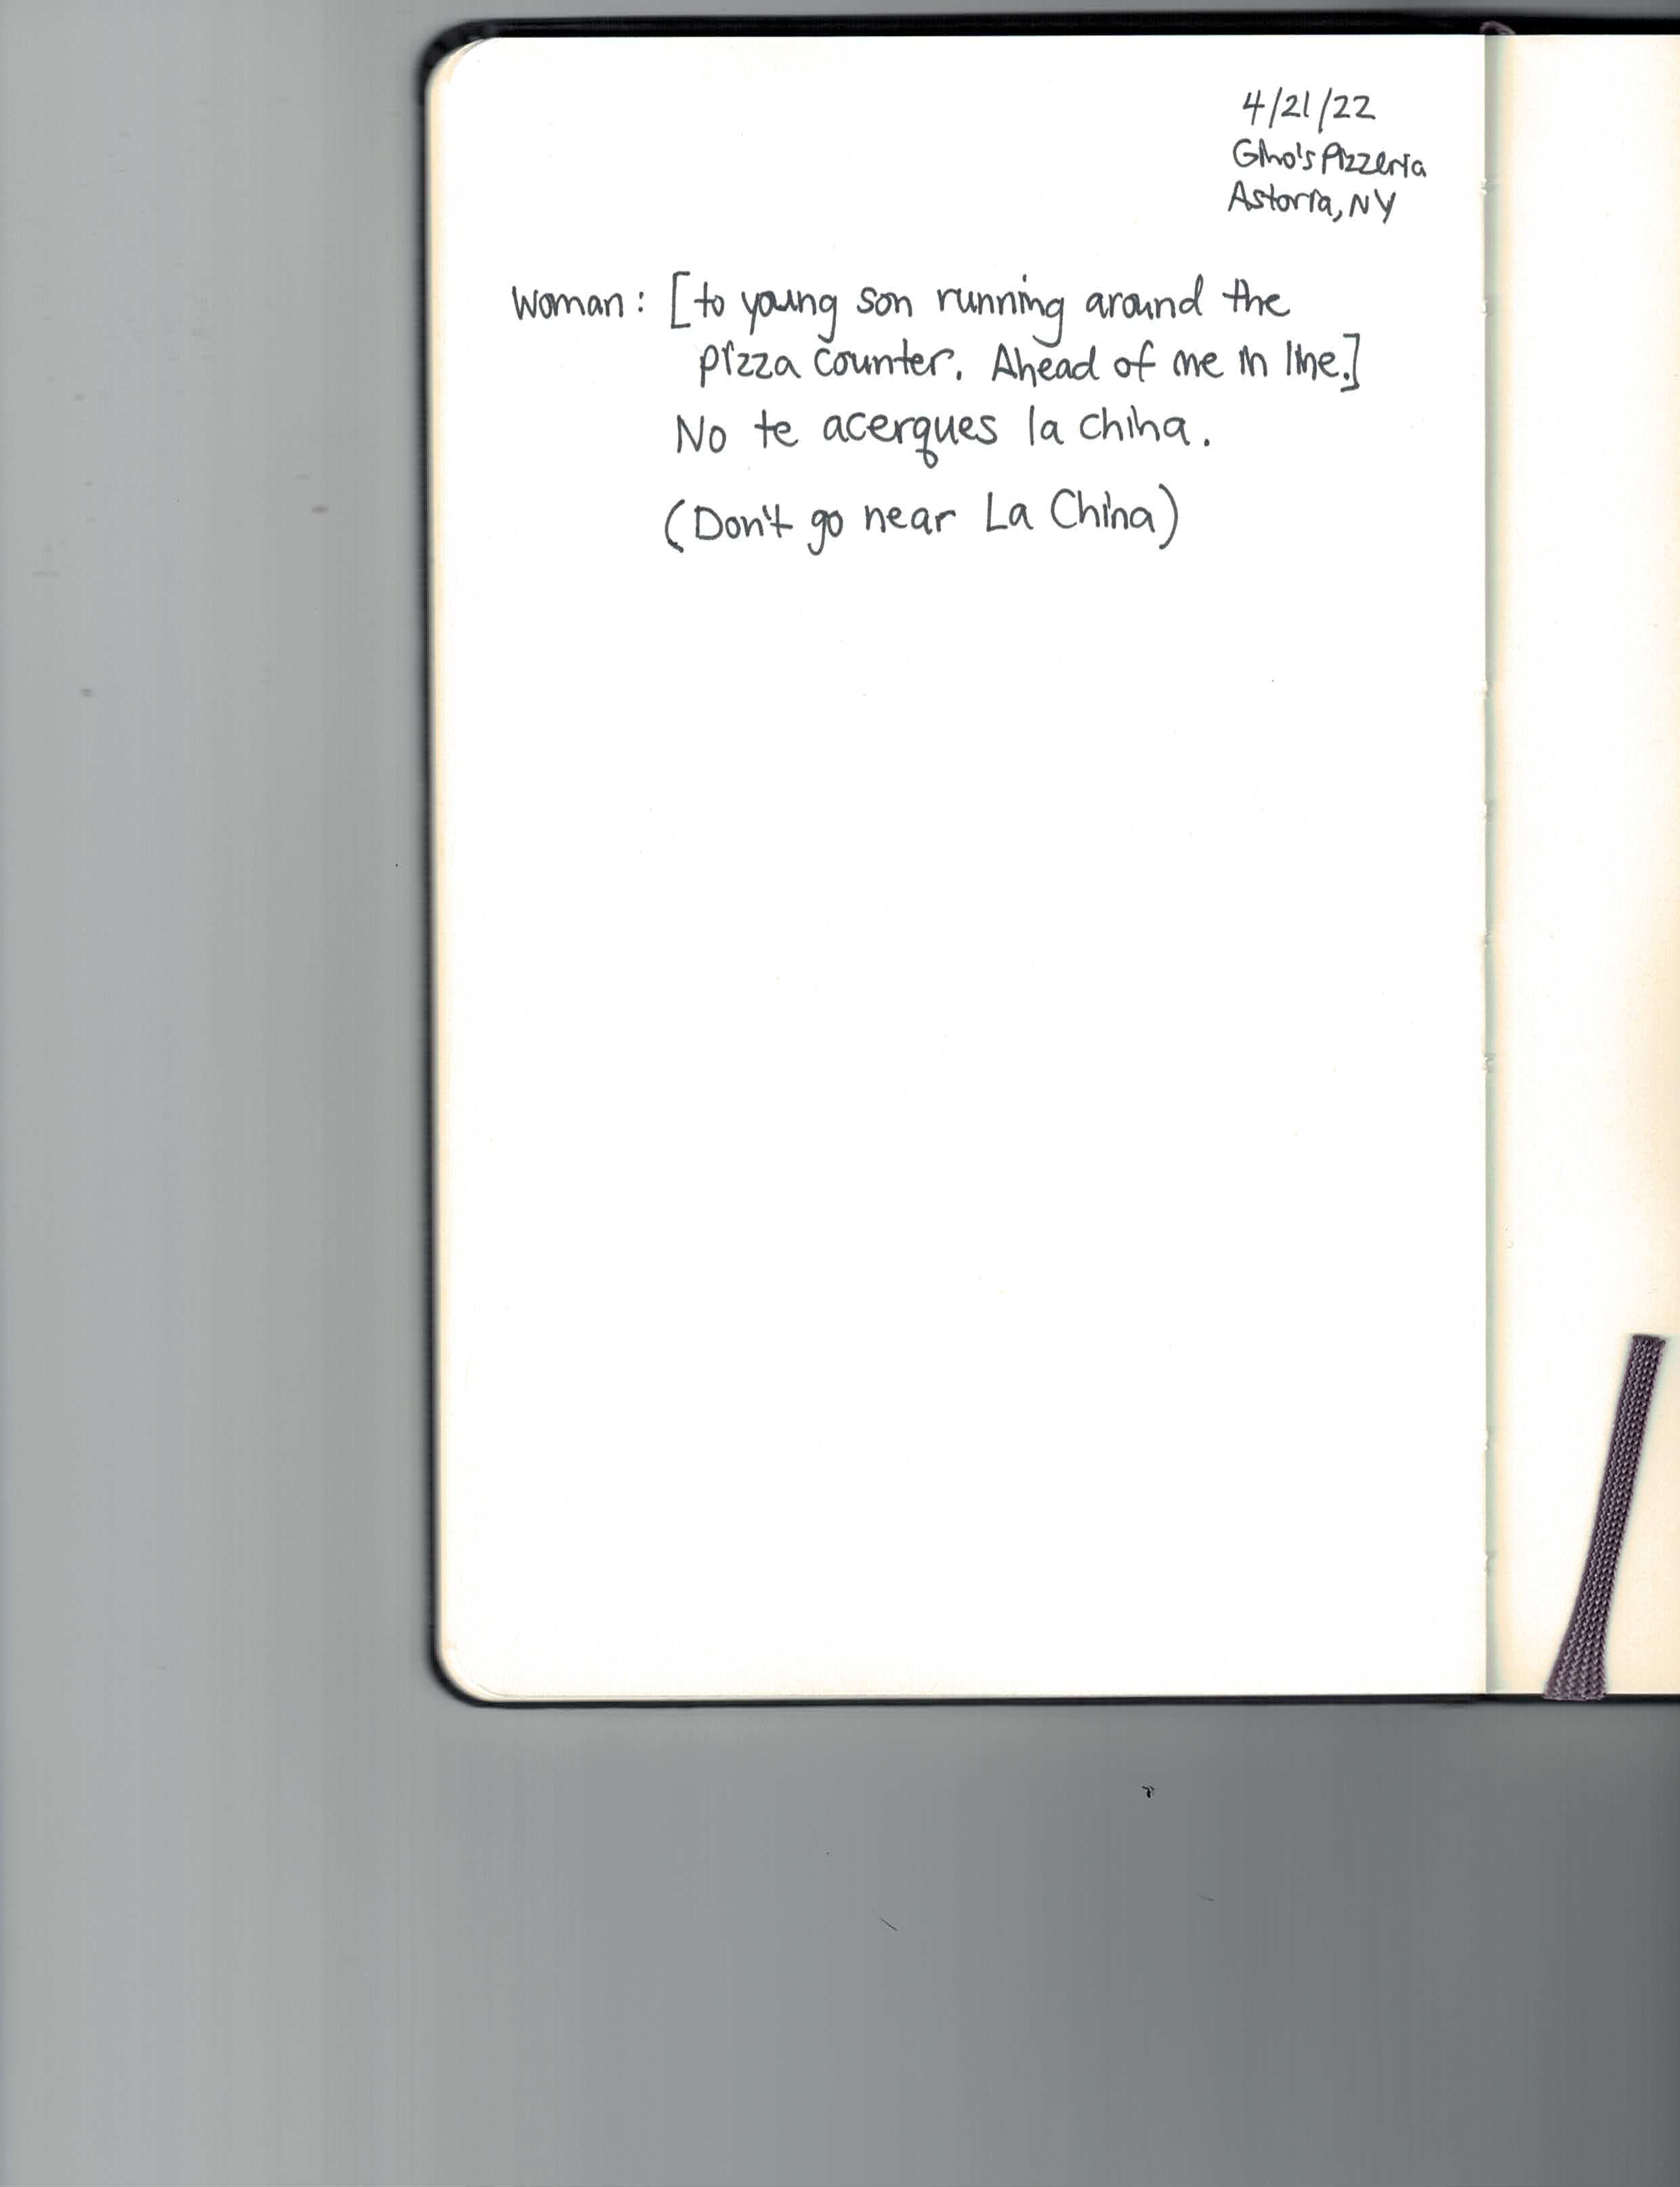 4/21/22
Gino's Pizzeria
Astoria, NY
Woman: [to young son running around the
pizza counter. Ahead of me in line.]
No te acerques la china.
(Don't go near La China)